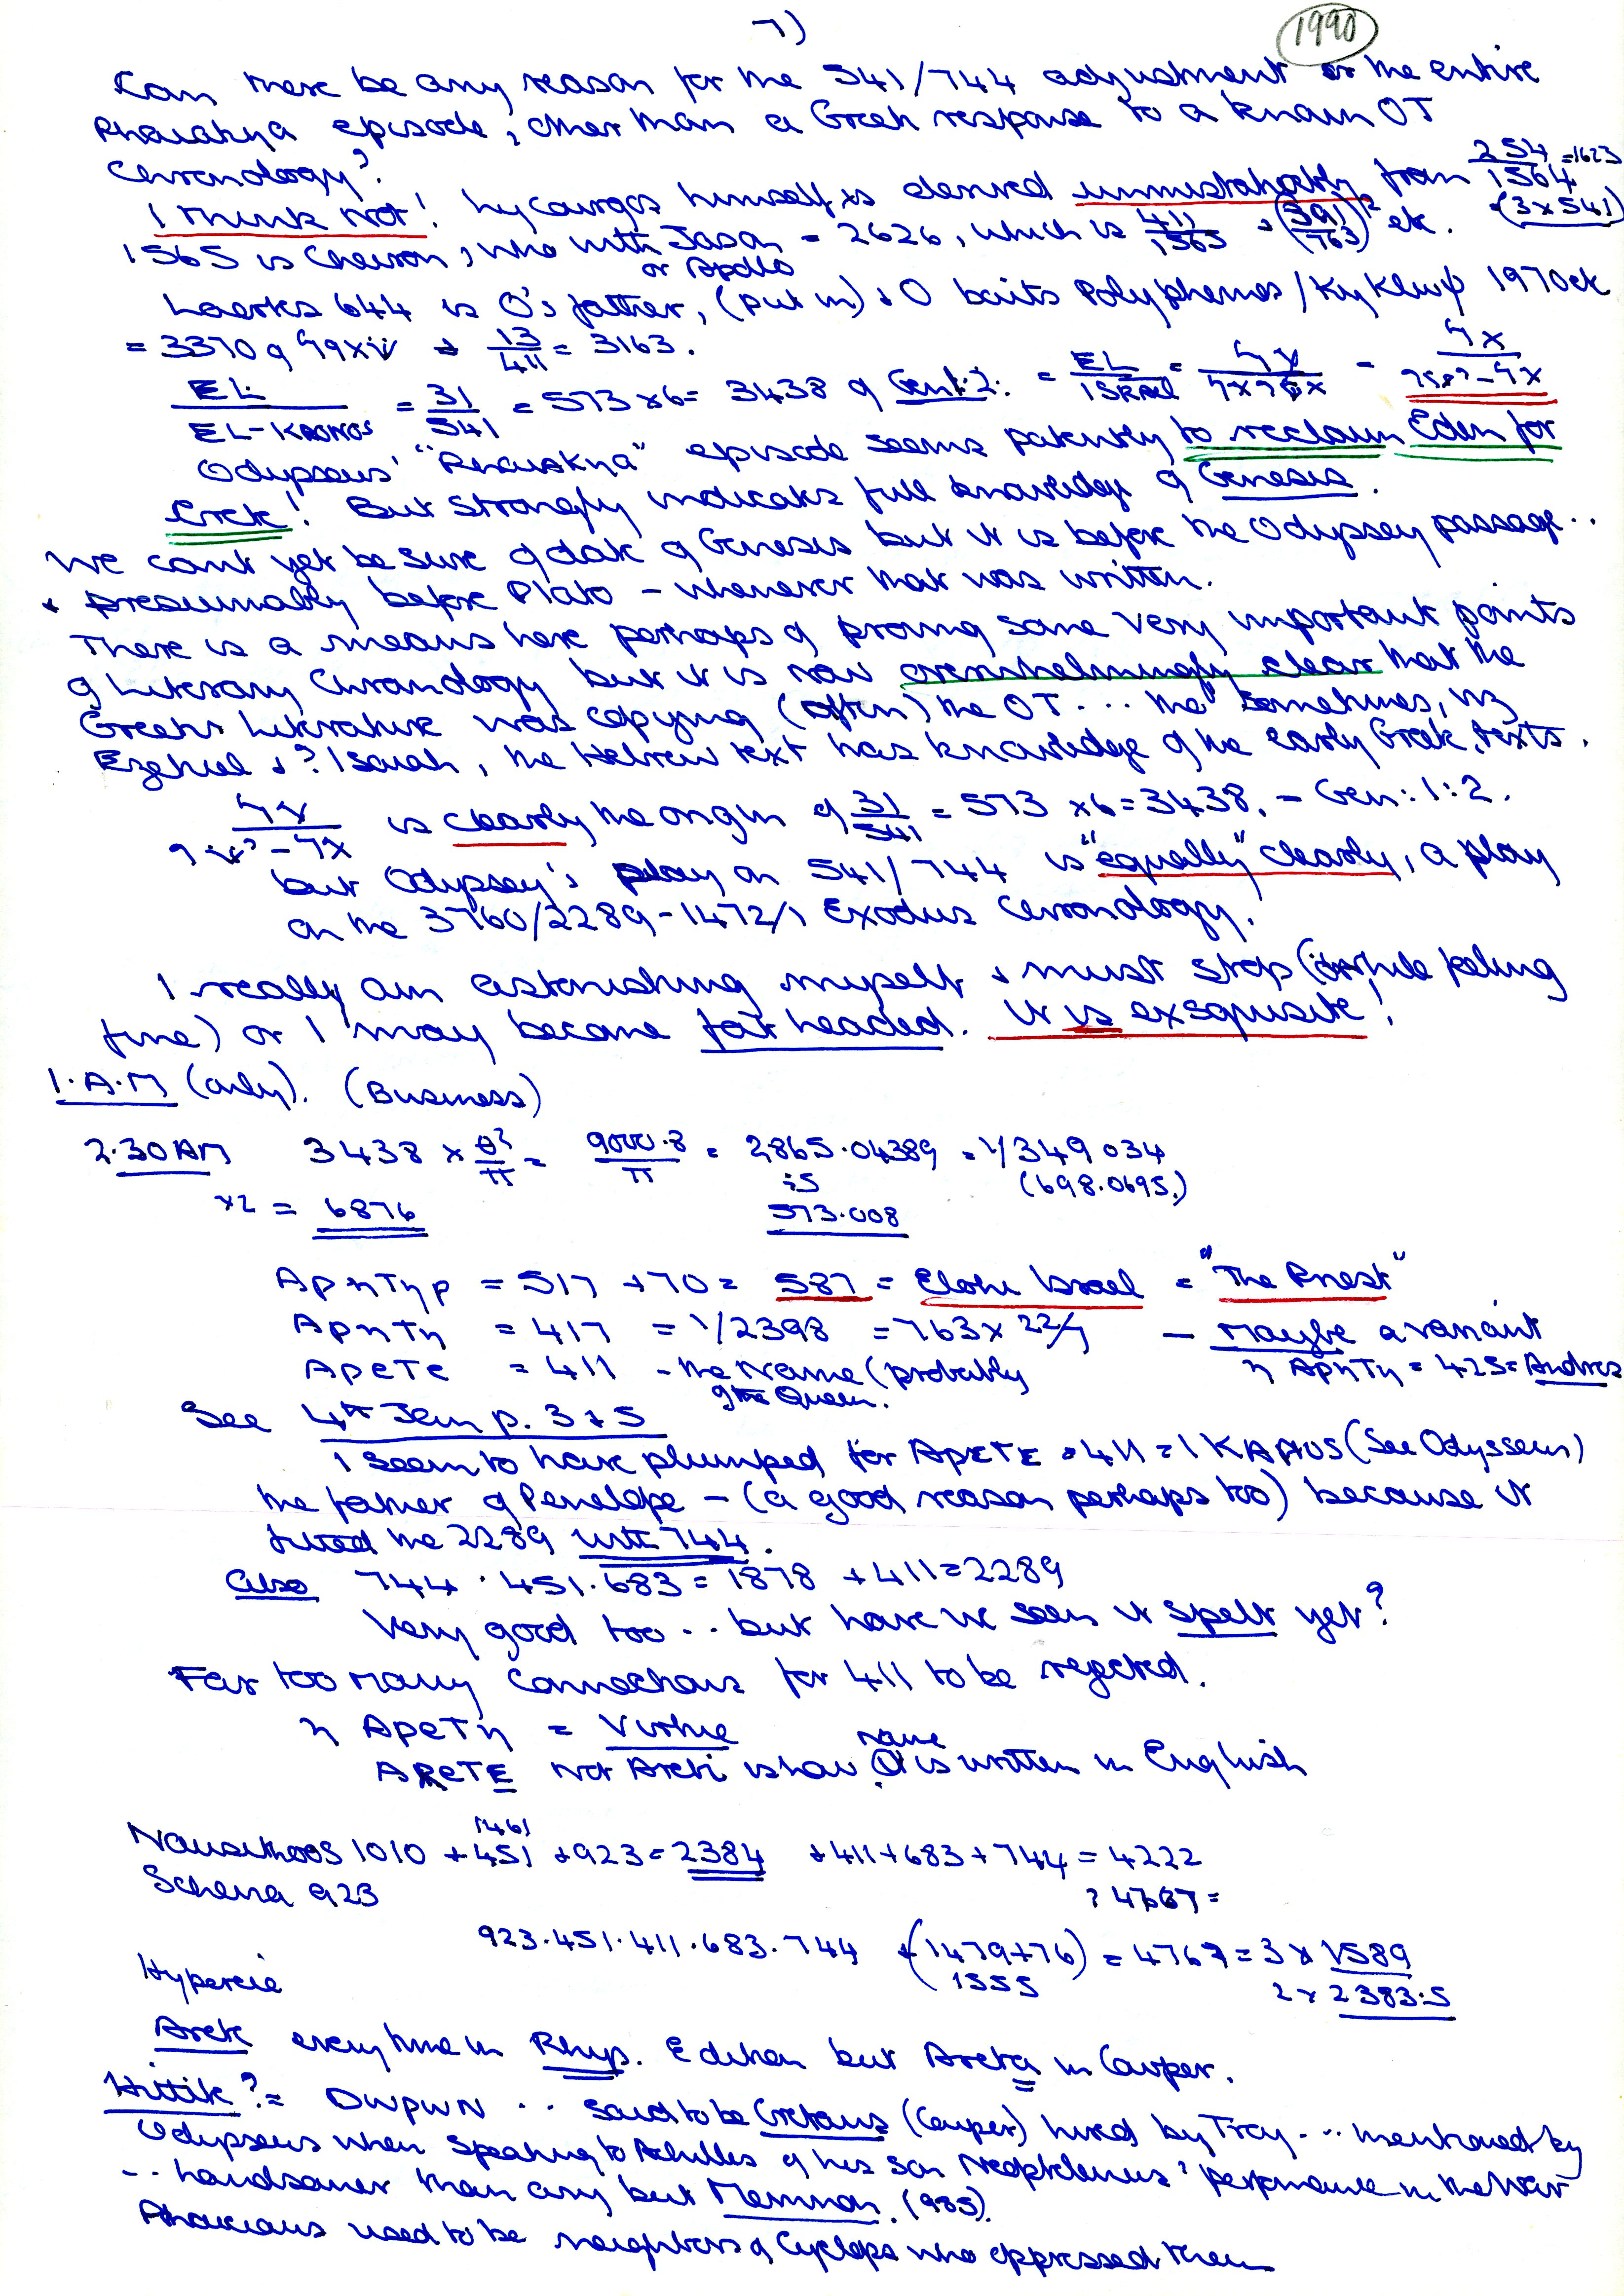 7)
1990
Can there be any reason for the 541/744 adjustment or the entire
Phaiakya episode, other than a Greek response to a known OT
Chronology?
I think not! Lycourgos himself is derived unmistakably from 254/1564 = 1623
(3 x 541)
1565 is Cheiron, who with Jason = 2626, which is 411/1565 etc.
or Apollo
Laertes 644 is O's father, (put in) & O baits Polyphemos / Kyklwψ 1970 etc
= 3370 & 13/411 = 3163.
EL/EL-KRONOS = 31/541 = 573 x 6 = 3438 of Gen 1:2. = EL/ISRAEL =
Odysseus' "Phaiakya" episode seems patently to reclaim Eden for
Crete! But strongly indicates full knowledge of Genesis.
We cant yet be sure of date of Genesis but it is before the Odyssey passage..
& presumably before Plato - whenever that was written.
There is a means here perhaps of proving some very important points
of Literary Chronology but it is now overwhelmingly clear that the
Greek Literature was copying (often) the OT ... tho' sometimes, viz
Ezekiel & ? Isaiah, the Hebrew text has knowledge of the early Greek texts.
is clearly the origin of 31/541 = 573 x 6 = 3438. - Gen: 1:2.
but Odyssey's play on 541/744 is "equally" clearly, a play
on the 3760/2289 - 1472/1 Exodus Chronology.
I really am astonishing myself & must stop (while feeling
fine) or I may become fat headed. It is exsquisite!
1.A.M (only). (Business)
2.30 AM 3438 x θ²/π = 9000.8/π = 2865.04389 = 1/349034
÷5 (698.0695.)
x2 = 6876 573.008
ΑρηΤηρ = 517 + 70 = 587 = Elohi Israel = "The Priest"
ΑρηΤη = 417 = 1/2398 = 763 x 22/7 - Maybe a variant
ΑρεΤε = 411 - the Name (probably η ΑρηΤη = 425 = Andros
of the Queen.
See 4th Jem p. 3 & 5
I seem to have plumped for ΑρεΤΕ = 411 = IKARIUS (See Odysseus)
the father of Penelope - (a good reason perhaps too) because it
fitted the 2289 with 744.
Also 744 . 451 . 683 = 1878 + 411 = 2289
Very good too .. but have we seen it spelt yet?
Far too many connections for 411 to be rejected.
η ΑρεΤη = Virtue
name
AReTE not Areti is how it is written in English
1461
Nausithoos 1010 + 451 + 923 = 2384 + 411 + 683 + 744 = 4222
Scheria 923 ? 4767 =
923 . 451 . 411 . 683 . 744 + (1479 + 76) = 4767 = 3 x 1589
1555 2 x 2383.5
Hypereia
Arete every time in Rhys. Edition but Areta in Cowper.
Hittite? = DWPWN .. Said to be Cretans (Cowper) hired by Troy ... mentioned by
Odysseus when speaking to Achilles of his son Neoptolemus' performance in the War
.. handsomer than any but Memnon. (985).
Phaikians used to be neighbors of Cyclops who oppressed them